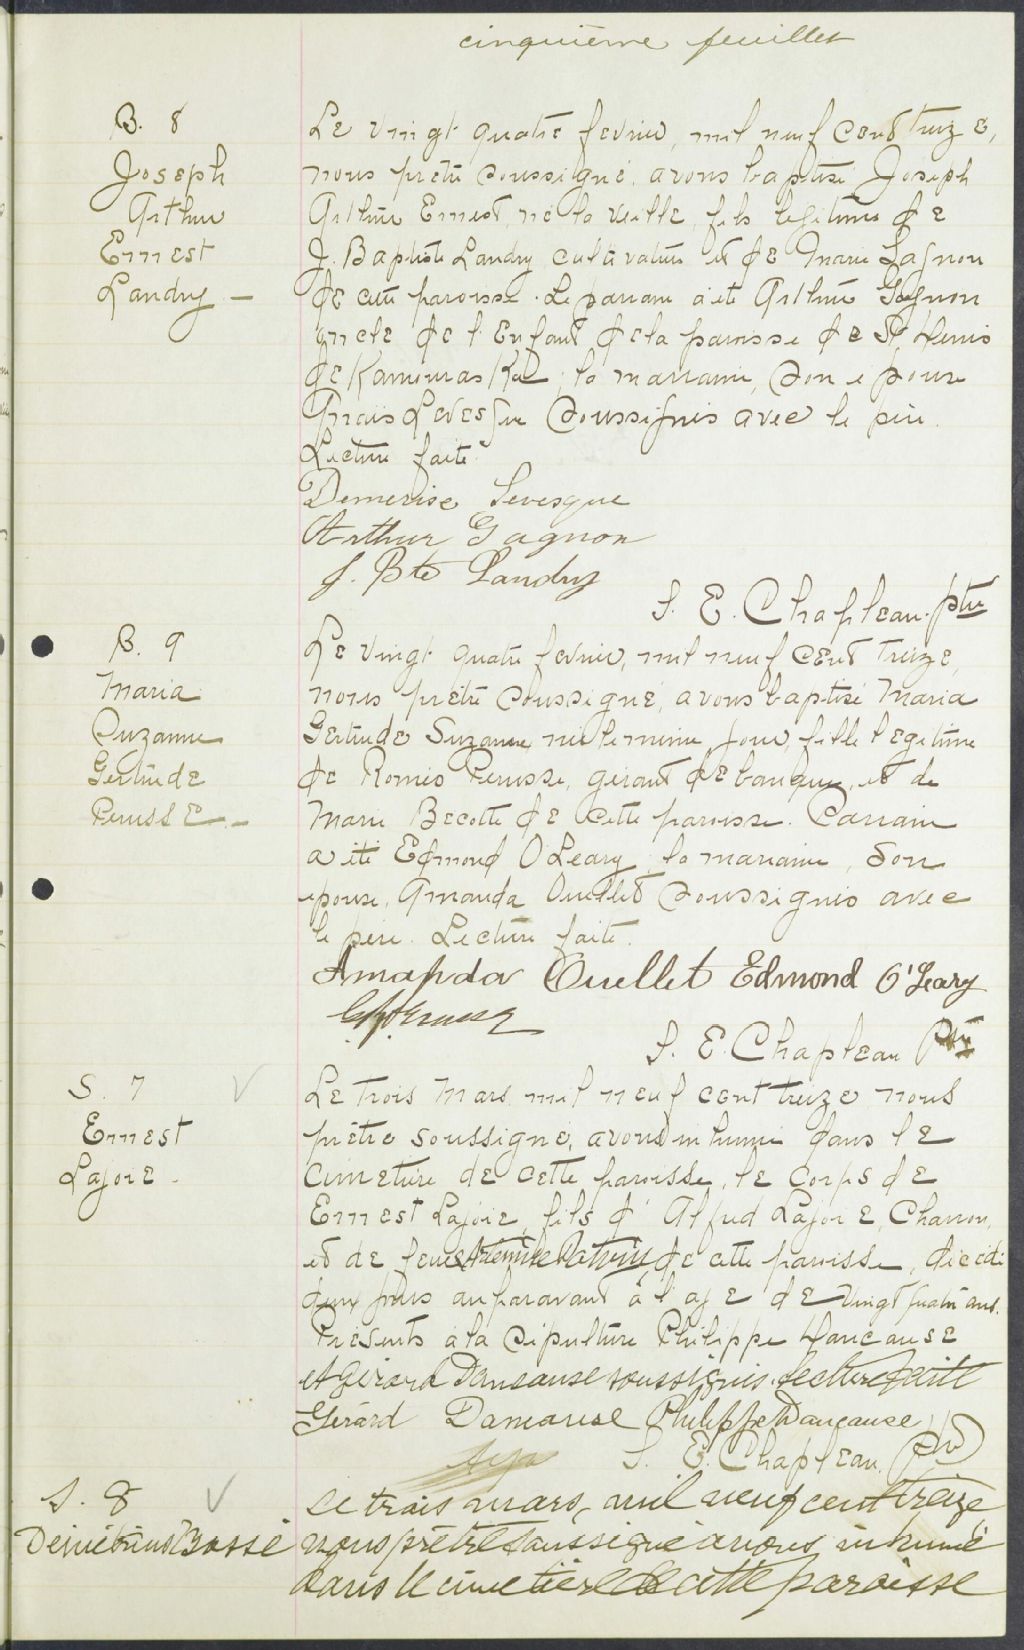 cinquième feuillet
B. 8
Joseph
Arthur
Ernest
Landry –
Le vingt quatre fevrier, mil neuf cent treize,
nous prêtre soussigné, avons baptisé Joseph
Arthur Ernest, né la veille, fils legitime de
J. Baptiste Landry cultivateur et de Marie Gagnon
de cette paroisse. Le parrain a été Arthur Gagnon
oncle de l'Enfant de la paroisse de St
de Kamouraska, la marraine, son epouse
Levesque soussignés avec le père.
Lecture faite.
Demerise Levesque
Arthur Gagnon
J. Bte Landry
S. E. Chapleau. ptre
B. 9
Maria
Suzanne
Gertrude
Perusse. –
Le vingt quatre fevrier, mil neuf cent treize,
nous prêtre soussigné, avons baptisé Maria
Gertrude Suzanne née le même jour, fille legitime
de Romeo Perusse, gérant de banque, et de
Marie Becotte de cette paroisse. Parrain
a été Edmond O'Leary, la marraine, son
epouse, Amanda Ouellet soussignés avec
le père. Lecture faite.
Amanda Ouellet Edmond O'Leary
S. E. Chapleau Ptre
S. 7
Ernest
Lajoie.
Le trois Mars mil neuf cent treize nous
prêtre soussigné, avons inhumé dans le
cimetière de cette paroisse, le corps de
Ernest Lajoie, fils d'Alfred Lajoie, Charron,
et de feue de cette paroisse, décédé
deux jours auparavant à l'age de vingt quatre ans.
Présents à la sépulture Philippe
et Gérard Dansause soussignés. Lecture faite
Gérard Damause Philippe Dancause
S. E. Chapleau. Ptre
S. 8
Bossé
Le trois mars, mil neuf cent treize
nous prêtre soussigné avons inhumé
dans le cimetière de cette paroisse